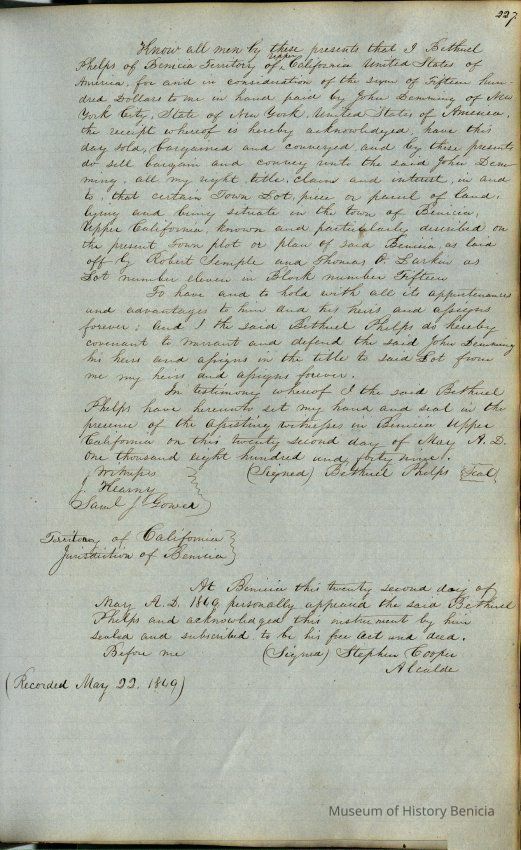 227
Know all men by these presents that I Bethuel
Phelps of Benicia Territory of Upper California United States of
America, for and in consideration of the sum of Fifteen hun-
dred Dollars to me in hand paid by John Demming of New
York City, State of New York, United States of America,
the receipt whereof is hereby acknowledged, have this
day sold, bargained and conveyed, and by these presents
do sell bargain and convey unto the said John Dem-
ming, all my right title, claim and interest, in and
to, that certain Town Lot, piece or parcel of land,
lying and being situate in the town of Benicia,
Upper California, known and particularly discribed on
the present Town plot or plan of said Benicia, as laid
off by Robert Semple and Thomas O. Larkin as
Lot number eleven in Block number Fifteen
To have and to hold with all its appurtenances
and advantages to him and his heirs and assigns
forever; and I the said Bethuel Phelps do hereby
covenant to warrant and defend the said John Demming
his heirs and assigns in the title to said Lot from
me my heirs and assigns forever.
In testimony whereof I the said Bethuel
Phelps have hereunto set my hand and seal in the
presence of the assisting witnesses in Benicia Upper
California on this twenty second day of May A.D.
one thousand eight hundred and forty nine.
Witness (Signed) Bethuel Phelps Seal
Hearny
Saml J Gower
Territory of California
Jurisdiction of Benicia
At Benicia this twenty second day of
May A.D. 1849 personally appeared the said Bethuel
Phelps and acknowledged this instrument by him
sealed and subscribed to be his free act and deed.
Before me (Signed) Stephen Cooper
Alcalde
(Recorded May 22, 1849)
Museum of History Benicia